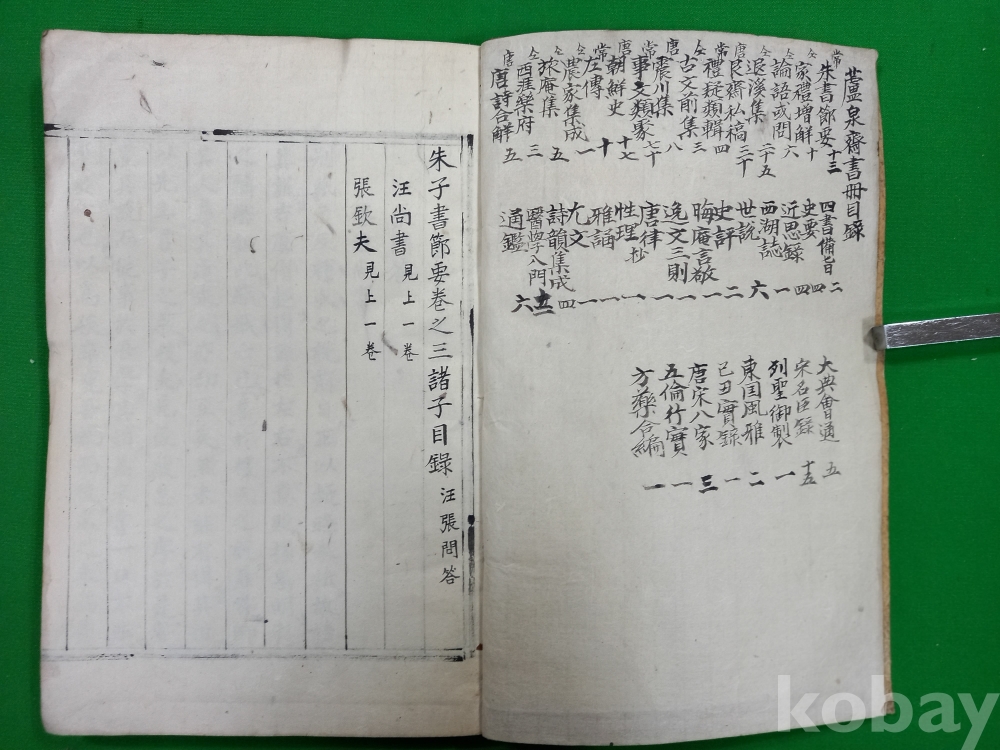 薑泉齋書冊目錄
常 朱書節要 十三
仝 家禮增解 十
仝 論語或問 六
仝 退溪集 二十五
唐 艮齋私稿 三十
仝 禮疑類輯 四
仝 古文前集 三
唐 震川集 八
常 事文類聚 七十
唐 朝鮮史 十七
常 左傳 十
仝 農家集成 一
仝 旅庵集 五
仝 西涯樂府 三
唐 唐詩合解 五
四書備旨 二
史要 四
近思錄 四
西湖誌 一
世說 六
史評 二
晦庵言敬 一
逸文三則 一
唐律 一
性理抄 一
雅誦 一
九文 一
詩韻集成 四
醫學入門
通鑑 六
大典會通 五
宋名臣錄 十五
列聖御製 一
東国風雅 二
己丑實錄 一
唐宋八家 三
五倫行實 一
方藥合編 一
朱子書節要卷之三諸子目錄 汪張問答
汪尚書 見上一卷
張欽夫 見上一卷
kobay